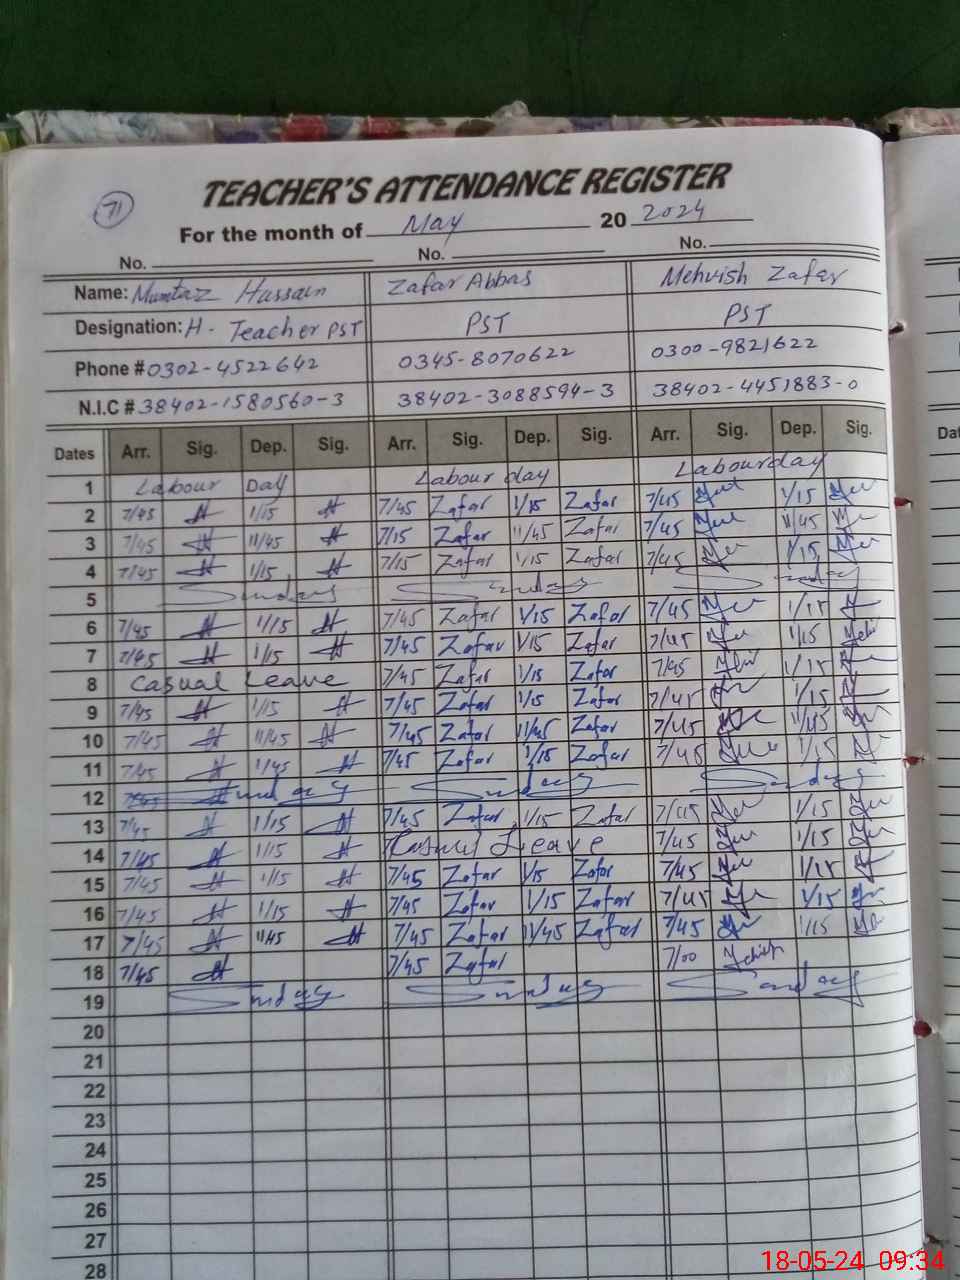 71
TEACHER'S ATTENDANCE REGISTER
For the month of May 20 2024
No. No. No.
Name: Mumtaz Hussain Zafar Abbas Mehvish Zafar
Designation: H- Teacher PST PST PST
Phone # 0302-4522642 0345-8070622 0300-9821622
N.I.C # 38402-1580560-3 38402-3088594-3 38402-4451883-0
Dates Arr. Sig. Dep. Sig. Arr. Sig. Dep. Sig. Arr. Sig. Dep. Sig.
1 Labour Day Labour day Labourday
2 7/45 1/15 7/45 Zafar 1/15 Zafar 7/45 1/15
3 7/45 11/45 7/15 Zafar 11/45 Zafar 7/45 11/45
4 7/45 1/15 7/15 Zafar 1/15 Zafar 7/45 1/15
5 Sunday Sunday Sunday
6 7/45 1/15 7/45 Zafar 1/15 Zafar 7/45 1/15
7 7/45 1/15 7/45 Zafar 1/15 Zafar 7/45 1/15
8 Casual Leave 7/45 Zafar 1/15 Zafar 7/45 1/15
9 7/45 1/15 7/45 Zafar 1/15 Zafar 7/45 1/15
10 7/45 11/45 7/45 Zafar 11/45 Zafar 7/45 11/45
11 7/45 1/45 7/45 Zafar 1/15 Zafar 7/45 1/15
12 Sunday Sunday Sunday
13 7/45 1/15 7/45 Zafar 1/15 Zafar 7/45 1/15
14 7/45 1/15 Casual Leave 7/45 1/15
15 7/45 1/15 7/45 Zafar 1/15 Zafar 7/45 1/15
16 7/45 1/15 7/45 Zafar 1/15 Zafar 7/45 1/15
17 7/45 11/45 7/45 Zafar 11/45 Zafar 7/45 1/15
18 7/45 7/45 Zafar 7/00
19 Sunday Sunday Sunday
20
21
22
23
24
25
26
27
28
Dat
18-05-24 09:34